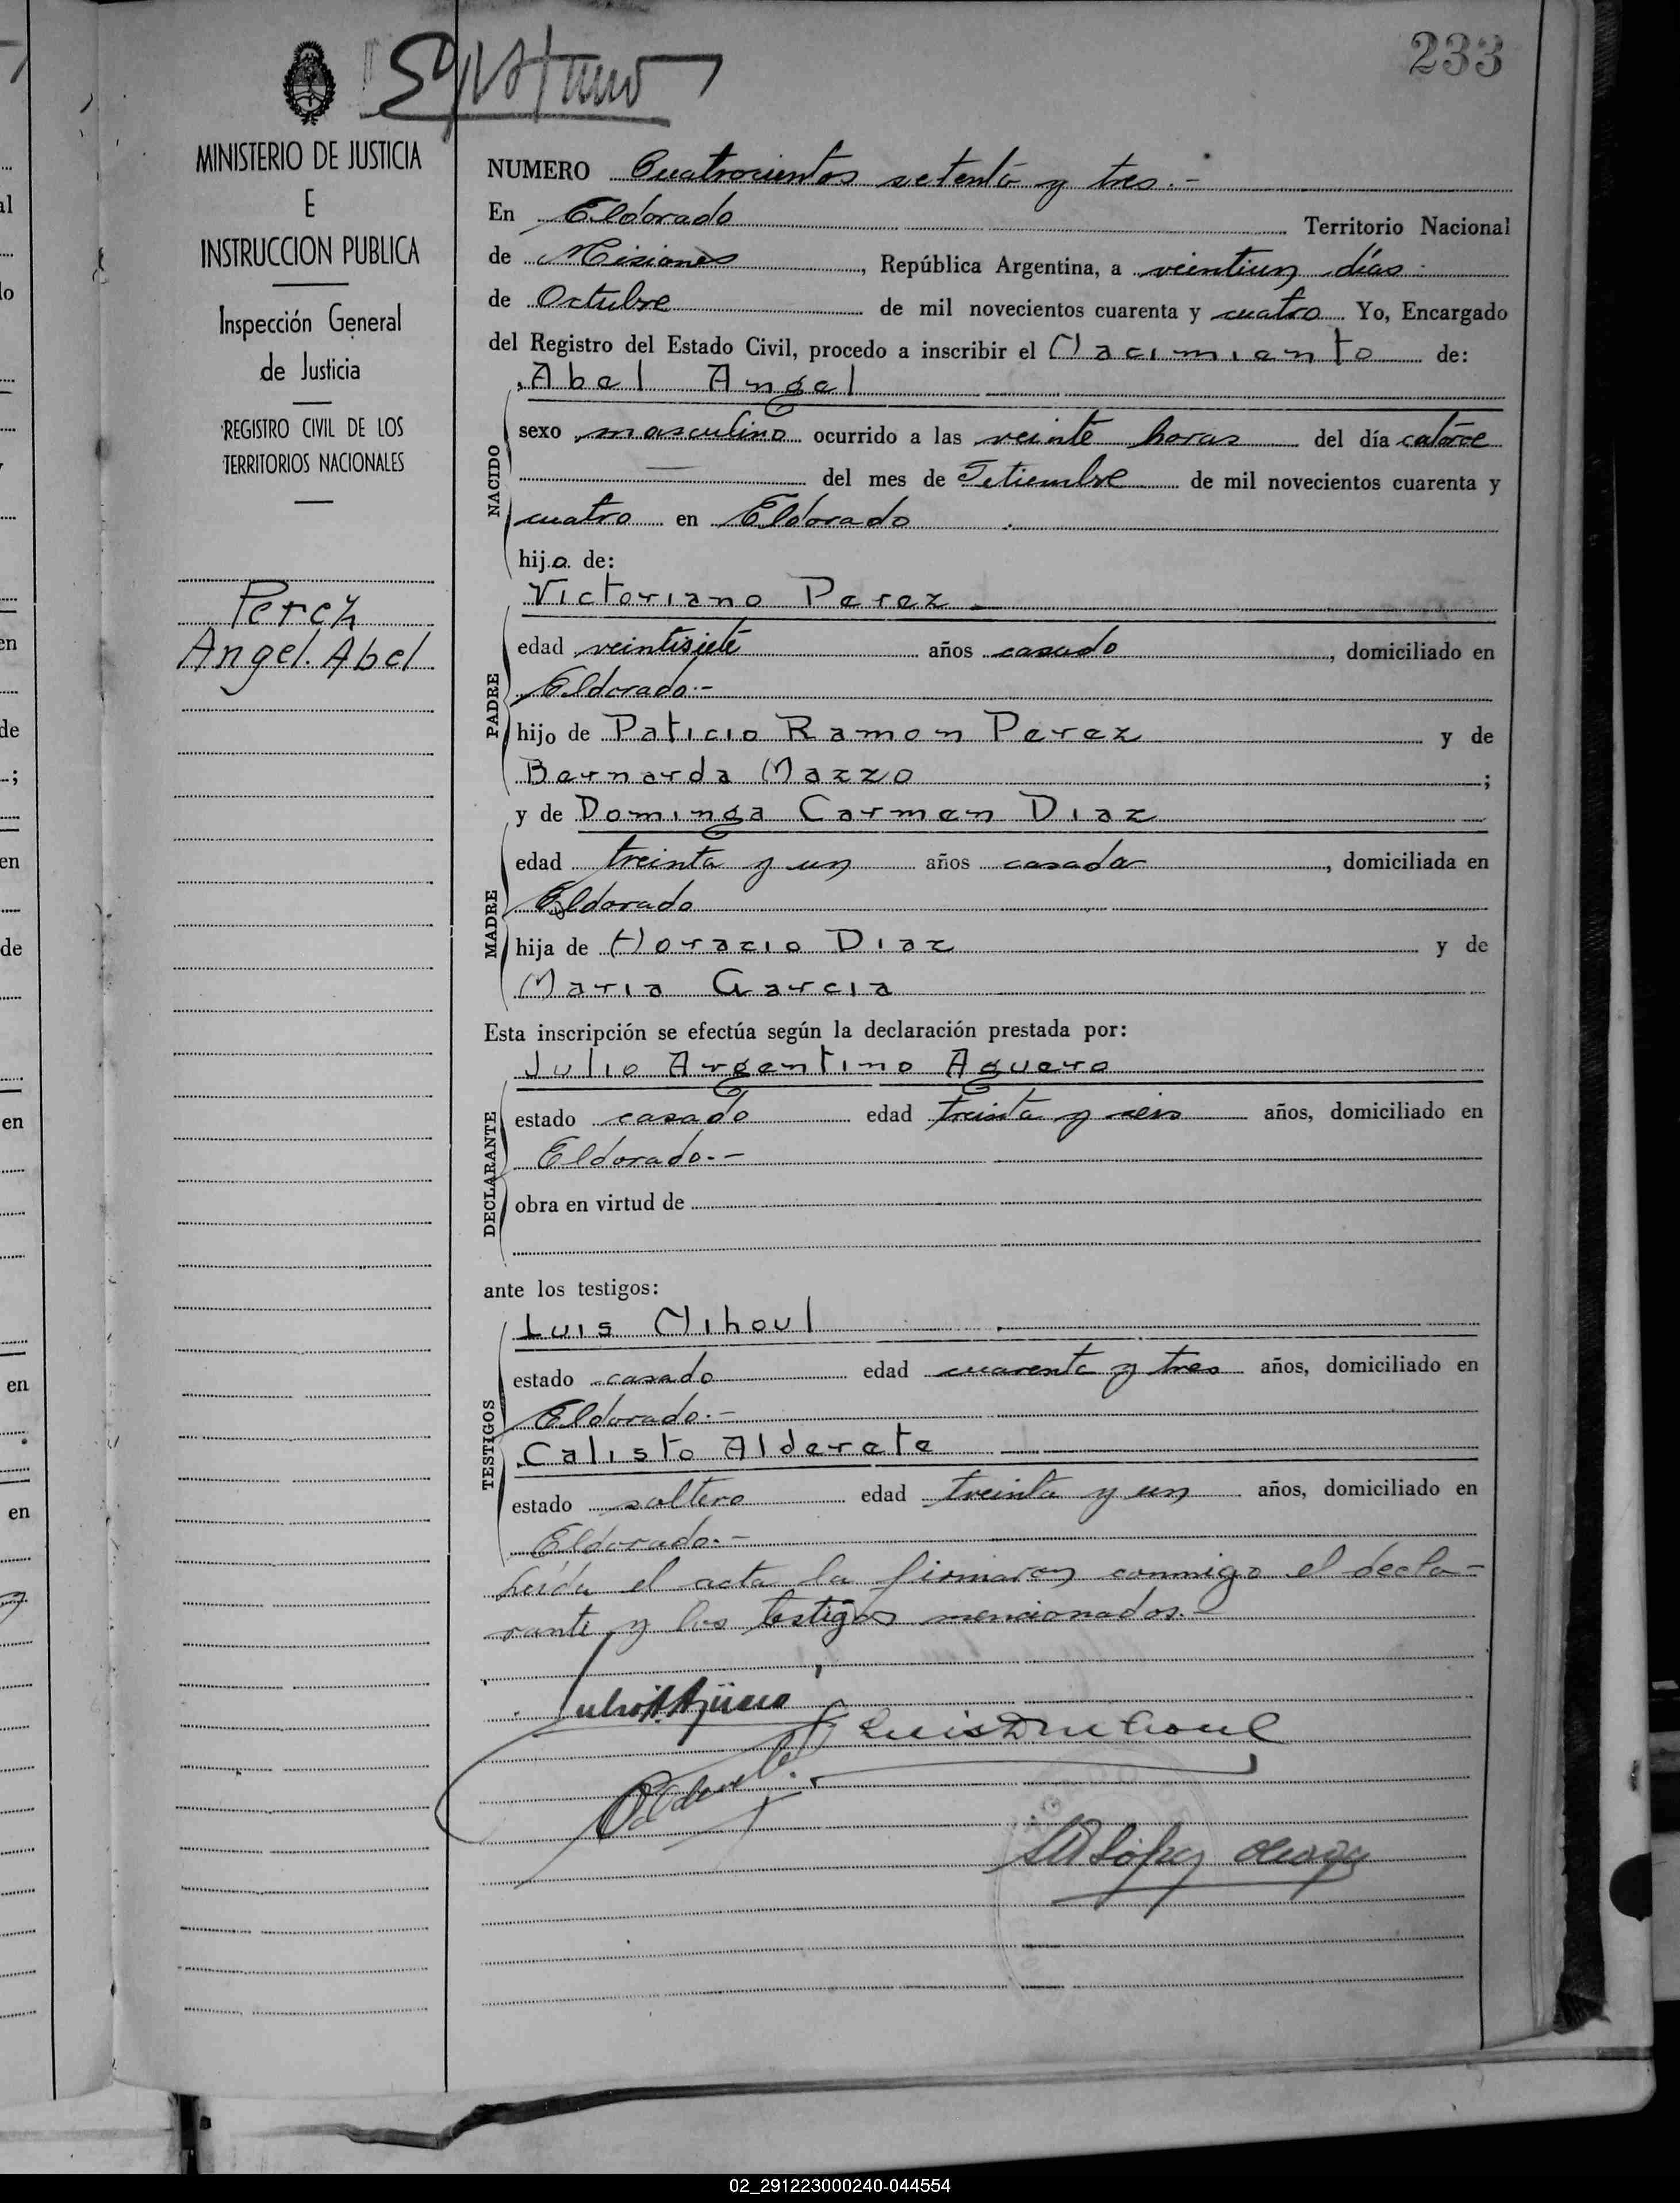 233
MINISTERIO DE JUSTICIA
E
INSTRUCCION PUBLICA
Inspección General
de Justicia
REGISTRO CIVIL DE LOS
TERRITORIOS NACIONALES
Perez
Angel. Abel
NUMERO Cuatrocientos setenta y tres.-
En Eldorado Territorio Nacional
de Misiones, República Argentina, a veintiun días
de Octubre de mil novecientos cuarenta y cuatro Yo, Encargado
del Registro del Estado Civil, procedo a inscribir el Nacimiento de:
NACIDO
Abel Angel
sexo masculino ocurrido a las veinte horas del día catorce
del mes de Setiembre de mil novecientos cuarenta y
cuatro en Eldorado
hijo de:
PADRE
Victoriano Perez
edad veintisiete años casado, domiciliado en
Eldorado.-
hijo de Paticio Ramon Perez y de
Bernarda Mazzo;
MADRE
y de Dominga Carmen Diaz
edad treinta y un años casada, domiciliada en
Eldorado
hija de Horazio Diaz y de
Maria Garcia
Esta inscripción se efectúa según la declaración prestada por:
DECLARANTE
Julio Argentino Aguero
estado casado edad treinta y seis años, domiciliado en
Eldorado.-
obra en virtud de
ante los testigos:
TESTIGOS
Luis Mihoul
estado casado edad cuarenta y tres años, domiciliado en
Eldorado.-
Calisto Alderete
estado soltero edad treinta y un años, domiciliado en
Eldorado.-
Leída el acta la firmaron conmigo el decla-
rante y los testigos mencionados.-
Julio A. Agüero
02_291223000240-044554